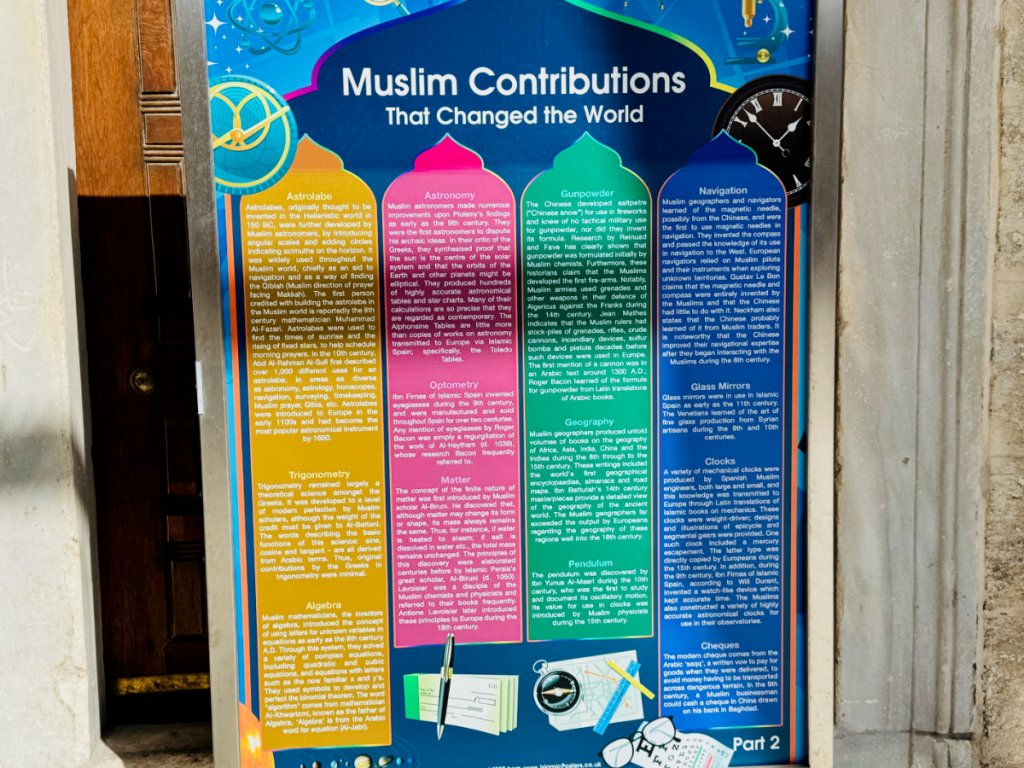 Muslim Contributions
That Changed the World
Astrolabe
Astrolabes, originally thought to be
invented in the Hellenistic world in
150 BC, were further developed by
Muslim astronomers, by introducing
angular scales and adding circles
indicating azimuths on the horizon. It
was widely used throughout the
Muslim world, chiefly as an aid to
navigation and as a way of finding
the Qiblah (Muslim direction of prayer
facing Makkah). The first person
credited with building the astrolabe in
the Muslim world is reportedly the 8th
century mathematician Muhammad
Al-Fazari. Astrolabes were used to
find the times of sunrise and the
rising of fixed stars, to help schedule
morning prayers. In the 10th century,
Abd Al-Rahman Al-Sufi first described
over 1,000 different uses for an
astrolabe, in areas as diverse
as astronomy, astrology, horoscopes,
navigation, surveying, timekeeping,
Muslim prayer, Qibla, etc. Astrolabes
were introduced to Europe in the
early 1100s and had become the
most popular astronomical instrument
by 1650.
Trigonometry
Trigonometry remained largely a
theoretical science amongst the
Greeks. It was developed to a level
of modern perfection by Muslim
scholars, although the weight of the
credit must be given to Al-Battani.
The words describing the basic
functions of this science: sine,
cosine and tangent – are all derived
from Arabic terms. Thus, original
contributions by the Greeks in
trigonometry were minimal.
Algebra
Muslim mathematicians, the inventors
of algebra, introduced the concept
of using letters for unknown variables in
equations as early as the 9th century
A.D. Through this system, they solved
a variety of complex equations,
including quadratic and cubic
equations, and equations with letters
such as the now familiar x and y's.
They used symbols to develop and
perfect the binomial theorem. The word
'algorithm' comes from mathematician
Al-Khwarizmi, known as the father of
Algebra. 'Algebra' is from the Arabic
word for equation (Al-Jabr).
Astronomy
Muslim astronomers made numerous
improvements upon Ptolemy's findings
as early as the 9th century. They
were the first astronomers to dispute
his archaic ideas. In their critic of the
Greeks, they synthesised proof that
the sun is the centre of the solar
system and that the orbits of the
Earth and other planets might be
elliptical. They produced hundreds
of highly accurate astronomical
tables and star charts. Many of their
calculations are so precise that they
are regarded as contemporary. The
Alphonsine Tables are little more
than copies of works on astronomy
transmitted to Europe via Islamic
Spain; specifically, the Toledo
Tables.
Optometry
Ibn Firnas of Islamic Spain invented
eyeglasses during the 9th century,
and were manufactured and sold
throughout Spain for over two centuries.
Any mention of eyeglasses by Roger
Bacon was simply a regurgitation of
the work of Al-Haytham (d. 1039),
whose research Bacon frequently
referred to.
Matter
The concept of the finite nature of
matter was first introduced by Muslim
scholar Al-Biruni. He discovered that,
although matter may change its form
or shape, its mass always remains
the same. Thus, for instance, if water
is heated to steam; if salt is
dissolved in water etc., the total mass
remains unchanged. The principles of
this discovery were elaborated
centuries before by Islamic Persia's
great scholar, Al-Biruni (d. 1050).
Lavoisier was a disciple of the
Muslim chemists and physicists and
referred to their books frequently.
Antione Lavoisier later introduced
these principles to Europe during the
18th century.
Gunpowder
The Chinese developed saltpetre
("Chinese snow") for use in fireworks
and knew of no tactical military use
for gunpowder, nor did they invent
its formula. Research by Reinuad
and Fave has clearly shown that
gunpowder was formulated initially by
Muslim chemists. Furthermore, these
historians claim that the Muslims
developed the first fire-arms. Notably,
Muslim armies used grenades and
other weapons in their defence of
Algericus against the Franks during
the 14th century. Jean Mathes
indicates that the Muslim rulers had
stock-piles of grenades, rifles, crude
cannons, incendiary devices, sulfur
bombs and pistols decades before
such devices were used in Europe.
The first mention of a cannon was in
an Arabic text around 1300 A.D.;
Roger Bacon learned of the formula
for gunpowder from Latin translations
of Arabic books.
Geography
Muslim geographers produced untold
volumes of books on the geography
of Africa, Asia, India, China and the
Indies during the 8th through to the
15th century. These writings included
the world's first geographical
encyclopaedias, almanacs and road
maps. Ibn Battutah's 14th century
masterpieces provide a detailed view
of the geography of the ancient
world. The Muslim geographers far
exceeded the output by Europeans
regarding the geography of these
regions well into the 18th century.
Pendulum
The pendulum was discovered by
Ibn Yunus Al-Masri during the 10th
century, who was the first to study
and document its oscillatory motion.
Its value for use in clocks was
introduced by Muslim physicists
during the 15th century.
Navigation
Muslim geographers and navigators
learned of the magnetic needle,
possibly from the Chinese, and were
the first to use magnetic needles in
navigation. They invented the compass
and passed the knowledge of its use
in navigation to the West. European
navigators relied on Muslim pilots
and their instruments when exploring
unknown territories. Gustav Le Bon
claims that the magnetic needle and
compass were entirely invented by
the Muslims and that the Chinese
had little to do with it. Neckham also
states that the Chinese probably
learned of it from Muslim traders. It
is noteworthy that the Chinese
improved their navigational expertise
after they began interacting with the
Muslims during the 8th century.
Glass Mirrors
Glass mirrors were in use in Islamic
Spain as early as the 11th century.
The Venetians learned of the art of
fine glass production from Syrian
artisans during the 9th and 10th
centuries.
Clocks
A variety of mechanical clocks were
produced by Spanish Muslim
engineers, both large and small, and
this knowledge was transmitted to
Europe through Latin translations of
Islamic books on mechanics. These
clocks were weight-driver; designs
and illustrations of epicycle and
segmental gears were provided. One
such clock included a mercury
escapement. The latter type was
directly copied by Europeans during
the 15th century. In addition, during
the 9th century, Ibn Firnas of Islamic
Spain, according to Will Durant,
invented a watch-like device which
kept accurate time. The Muslims
also constructed a variety of highly
accurate astronomical clocks for
use in their observatories.
Cheques
The modern cheque comes from the
Arabic 'saqq', a written vow to pay for
goods when they were delivered, to
avoid money having to be transported
across dangerous terrain. In the 9th
century, a Muslim businessman
could cash a cheque in China drawn
on his bank in Baghdad.
Part 2
from www.IslamicPosters.co.uk